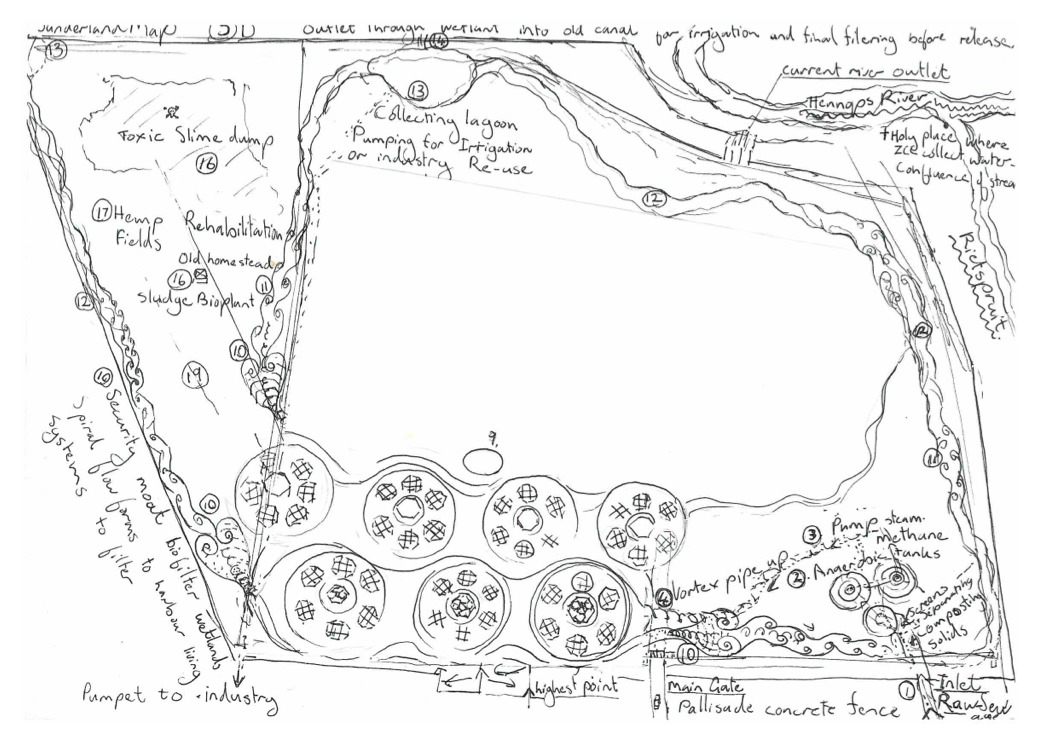 Sunderland Map (3)D
Outlet through wetland into old canal for irrigation and final filering before release
13
11 14
current river outlet
Hennops River
13
Collecting lagoon
Pumping for Irrigation
or industry Re-use
Toxic Slime dump
16
Holy place where
ZCC collect water-
Confluence of strea
12
17 Hemp
Fields
Rehabilitation
Old homestead
16
Sludge Bioplant
11
Rietspruit
12
12
10
19
10 Security moat biofilter wetlands
Spiral flow forms to harbour living
systems to filter
9.
11
10
3 Pump steam
methane
2. Anaerobic tanks
Vortex pipe up
4
Screens
separating
composting
solids
10
Pumpet to industry
highest point
main Gate
Pallisade concrete fence
1
Inlet
Raw